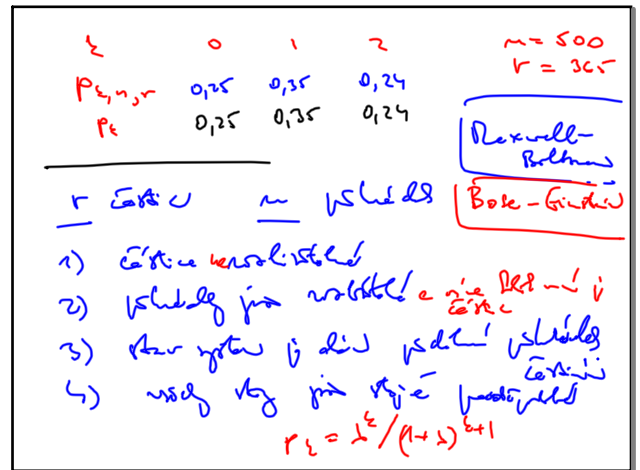 k 0 1 2
p k,n,r 0,25 0,35 0,24
p k 0,25 0,35 0,24
n = 500
r = 365
Maxwell-
Boltzmann
Bose-Einstein
r částic n přihrádek
1) částice nerozlišitelné
2) přihrádky jsou rozlišitelné
3) stav systému je dán
částicemi
4) všechny stavy jsou stejně pravděpodobné
p k = λ^k / (1+λ)^k+1